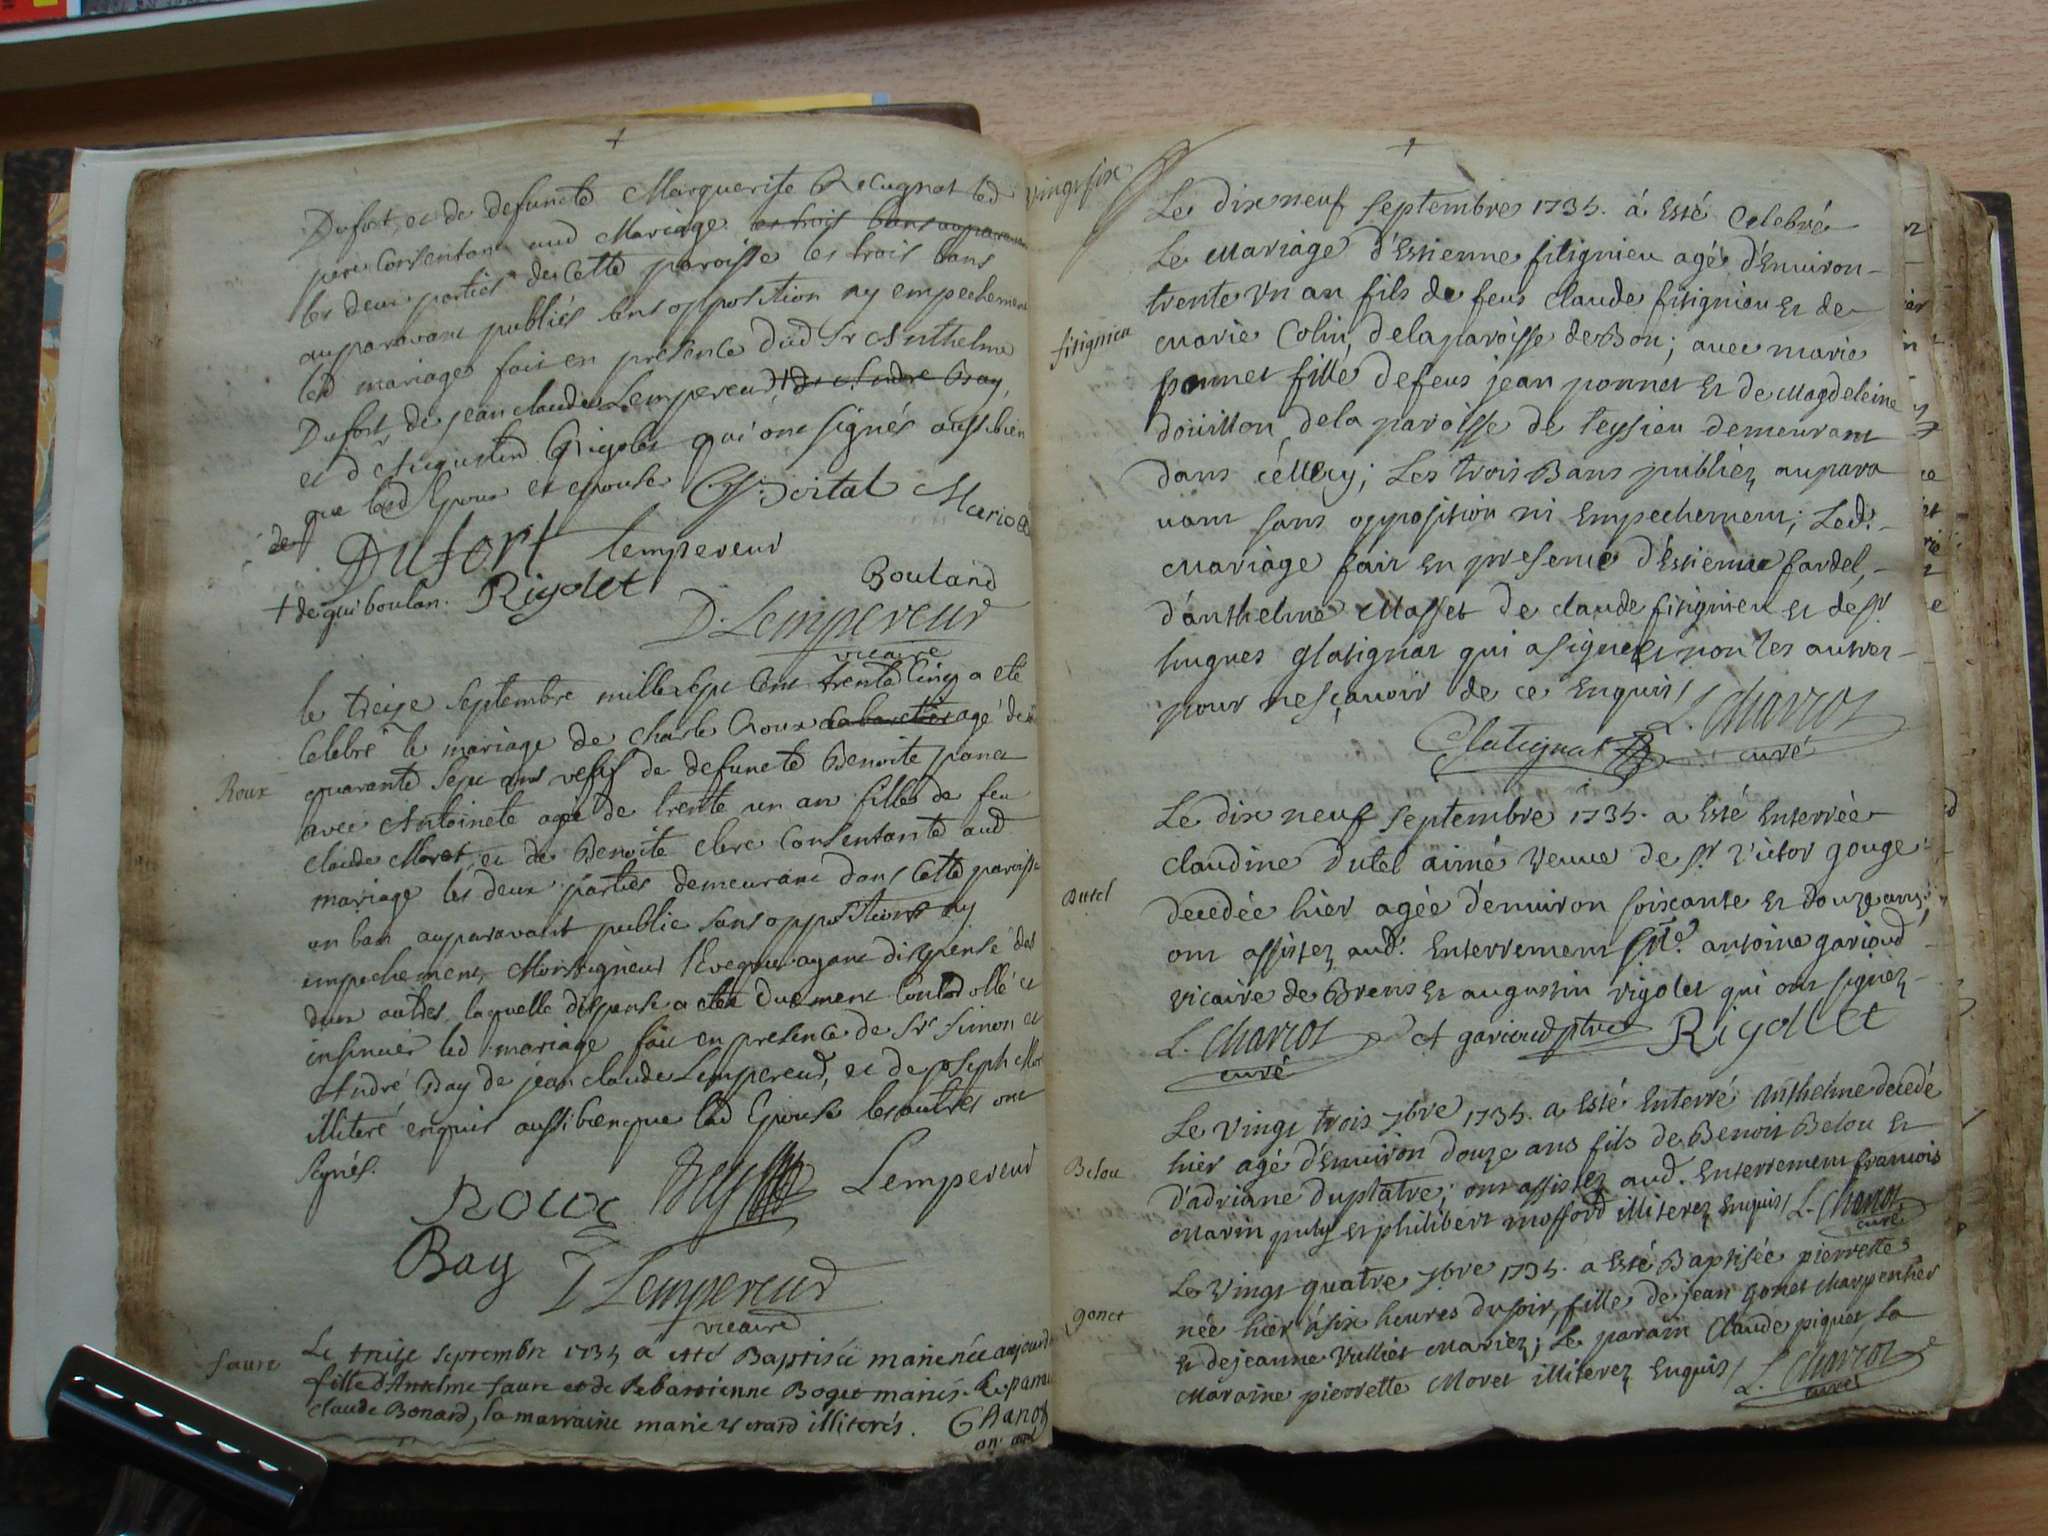 Dufort, et de defuncte Marguerite Recugnat led
pere consentant aud Mariage et trois bans auparavant
les deux parties de cette paroisse les trois bans
auparavant publiés sans opposition ny empechement
led mariage fait en presence dud Sr Anthelme
Dufort de jean claude Lempereur, + de André Bay,
et d'Augustin Rigolet qui ont signés aussi bien
que led Epoux et epouse
Marie
Dufort lempereur
Bouland
+ de qui boulan. Rigolet
D. Lempereur
vicaire
le treize septembre mille sept cent trente cinq a eté
Roux
celebré le mariage de charle Roux agé de
quarante sept ans vefuf de defuncte Benoite ponet
avec Antoinete agée de trente un an fille de feu
claude Moret, et de Benoite clerc consentante aud
mariage les deux parties demeurant dans cette paroisse
un ban auparavant publie sans opposition ny
empechement, Monseigneur l'Eveque ayant dispensé des
deux autres laquelle dispense a eté duement controllé et
insinuée led mariage fait en presence de Sr Simon et
André Bay de jean claude Lempereur, et de joseph Mor
illiteré enquis aussi bien que lad Epouse les autres ont
signés.
Roux Bay Lempereur
Bay
D Lempereur
vicaire
Faure
Le treize septembre 1735 a esté Baptisée marie née aujourd
fille d'Anselme faure et de Sebastienne Boget mariés. Le parain
claude Bonard, la marraine marie illiterés.
vingt six
Le dix neuf septembre 1735. á esté celebré
Le Mariage d'Estienne fitignieu agé d'Environ
trente un an fils de feus claude fitignieu et de
fitignieu
Marie Colin, de la paroisse de Bon; avec marie
ponnet fille de feus jean ponnet et de Magdeleine
douillon de la paroisse de Teysieu demeurant
dans céllecy; Les trois Bans publiez aupara
vant sans opposition ni Empechement; Ledt
Mariage fait En presence d'Estienne fardel,
d'anthelme Masset de claude fitignieu et de sr
hugues glatignat qui a signé et non les autres
pour ne sçavoir de ce Enquis / L. Charcot
Glatignat curé
Le dix neuf septembre 1735. a esté Enterrée
claudine dutel aimé veuve de sr victor gouge
Dutel
decedée hier agée d'environ soixante et douze ans;
ont assistez aud. Enterrement sre antoine garioud
vicaire de Brens et augustin rigolet qui ont signez
L. Charcot A garioud ptre Rigollet
curé
Le vingt trois 7bre 1735. a esté Enterré Anthelme decedé
hier agé d'Environ douze ans fils de Benoit Belou et
Belou
d'adriane duplatre; ont assistez aud. Enterrement francois
Marin puty et philibert mofford illiterez Enquis / L. Charcot
curé
Le vingt quatre 7bre 1735. a esté Baptisée pierrette
née hier á six heures du soir, fille de jean gonet charpentier
gonet
et de jeanne Vulliet Mariez; Le parain Claude piquet, la
Maraine pierrette Moret illiterez Enquis / L. Charcot
curé